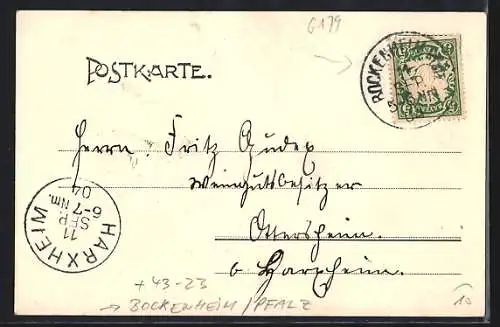 G179
POSTKARTE.
BOCKENHEIM
Herrn Fritz
Weingutsbesitzer
Ottersheim
b. Harxheim.
HARXHEIM
11
SEP.
6-7 Nm.
04
+ 43-23
→ BOCKENHEIM/PFALZ
10